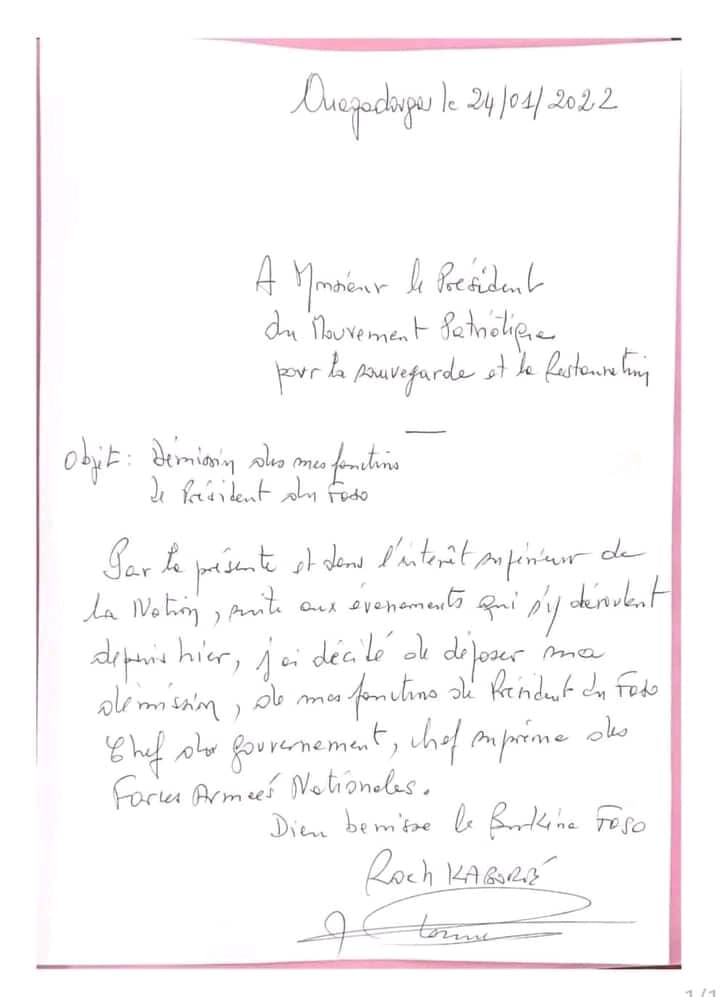 Ouagadougou le 24/01/2022
A Monsieur le Président
du Mouvement Patriotique
pour la sauvegarde et la Restauration
Objet: Démission des mes fonctions
de Président du Faso
Par la présente et dans l'interêt supérieur de
la Nation, suite aux évenements qui s'y déroulent
depuis hier, j'ai décidé de déposer ma
démission, de mes fonctions de Président du Faso
Chef du gouvernement, chef suprême des
Forces Armées Nationales.
Dieu benisse le Burkina Faso
Roch KABORÉ
1/1